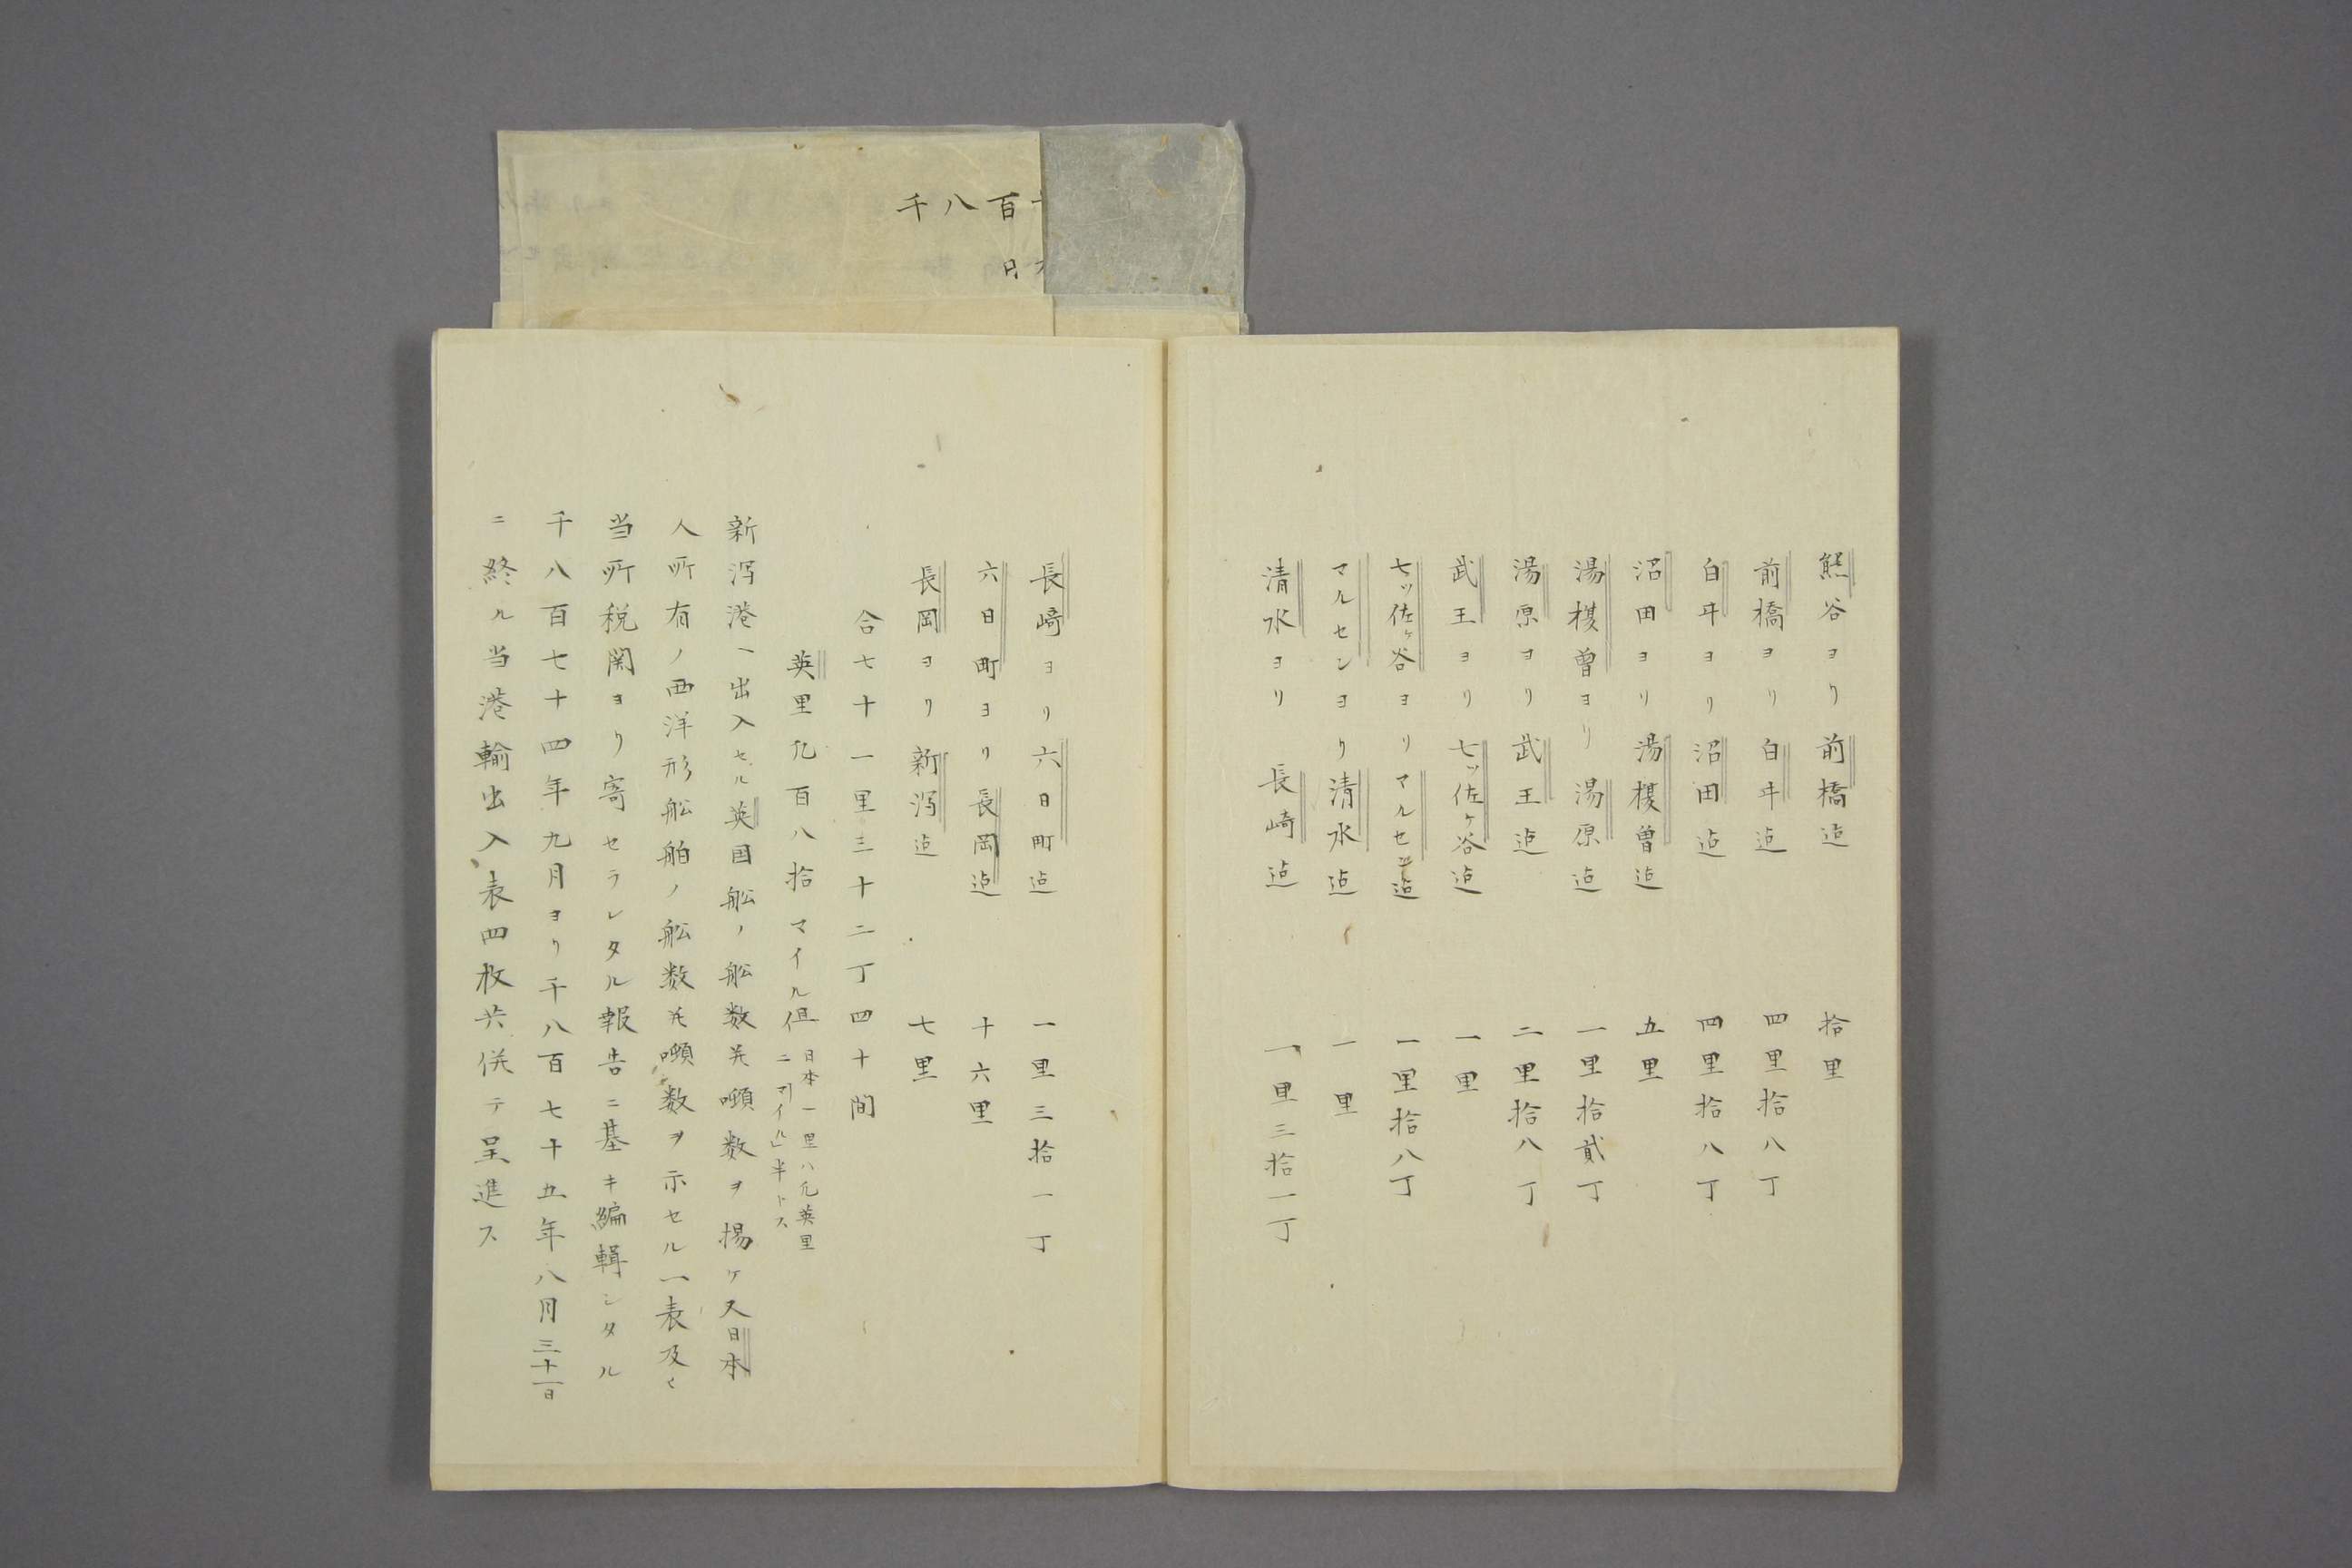 熊谷ヨリ前橋迠 拾里
前橋ヨリ白ヰ迠 四里拾八丁
白ヰヨリ沼田迠 四里拾八丁
沼田ヨリ湯榎曽迠 五里
湯榎曽ヨリ湯原迠 一里拾貳丁
湯原ヨリ武王迠 二里拾八丁
武王ヨリ七ッ佐ヶ谷迠 一里
七ッ佐ヶ谷ヨリマルセン迠 一里拾八丁
マルセンヨリ清水迠 一里
清水ヨリ長崎迠 一里三拾一丁
長崎ヨリ六日町迠 一里三拾一丁
六日町ヨリ長岡迠 十六里
長岡ヨリ新泻迠 七里
合七十一里三十二丁四十間
英里凢百八拾マイル但日本一里ハ凢英里
二「マイル」半トス
新泻港ヘ出入セル英国舩ノ舩数并噸数ヲ揚ケ又日本
人所有ノ西洋形舩舶ノ舩数并噸数ヲ示セル一表及ヒ
当所税関ヨリ寄セラレタル報告ニ基キ編輯シタル
千八百七十四年九月ヨリ千八百七十五年八月三十一日
ニ終ル当港輸出入表四枚共併テ呈進ス
千八百
日